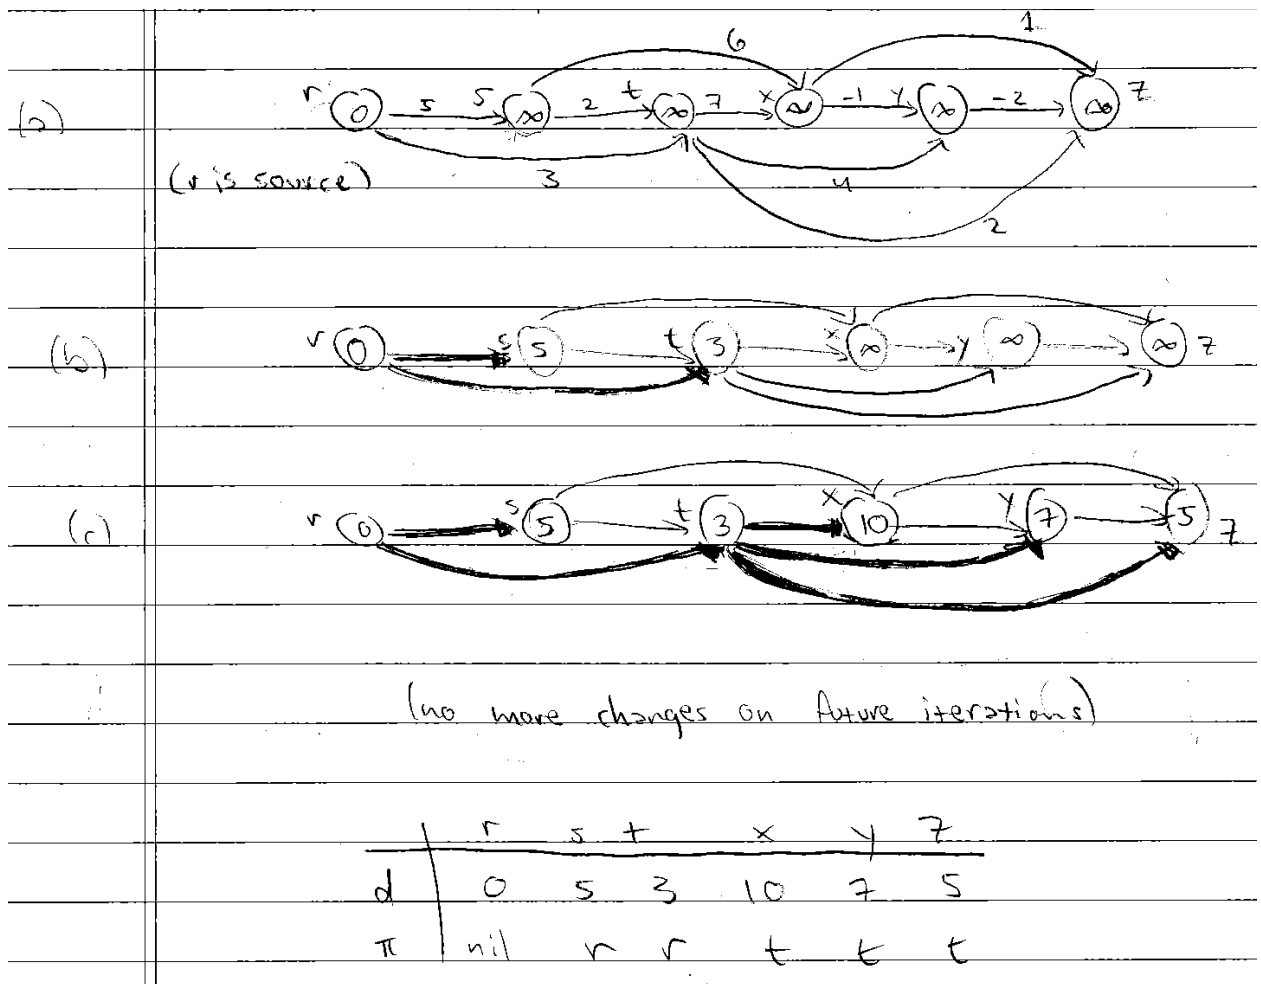 6 1
(a) r 0 5 s ∞ 2 t ∞ 7 x ∞ -1 y ∞ -2 ∞ z
(r is source) 3 4 2
(b) r 0 s 5 t 3 x ∞ y ∞ ∞ z
(c) r 0 s 5 t 3 x 10 y 7 5 z
(no more changes on future iterations)
r s t x y z
d 0 5 3 10 7 5
π nil r r t t t